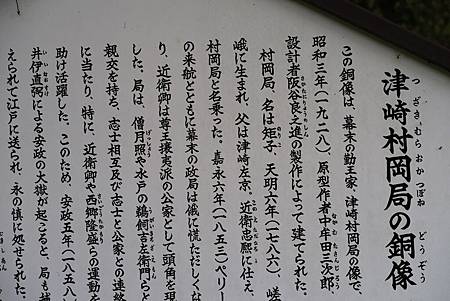 津崎村岡局の銅像
つざきむらおかつぼね どうぞう
この銅像は、幕末の勤王家、津崎村岡局の像で、
昭和三年(一九二八)原型作者中牟田三次郎、
設計者阪谷良之進の製作によって建てられた。
村岡局、名は矩子、天明六年(一七八六)、嵯
峨に生まれ、父は津崎左京。近衛忠熙に仕え、
村岡局と名乗った。嘉永六年(一八五三)ペリー
の来航とともに幕末の政局は俄に慌ただしくな
り、近衛卿は尊王攘夷派の公家として頭角を現
した。局は、僧月照や水戸の鵜飼吉左衛門らと
親交を持ち、志士相互及び志士と公家との連絡
に当たり、特に、近衛卿や西郷隆盛らの運動を
助け活躍した。このため、安政五年(一八五八
井伊直弼による安政の大獄が起こると、局も捕
えられて江戸に送られ、永の慎に処せられた。